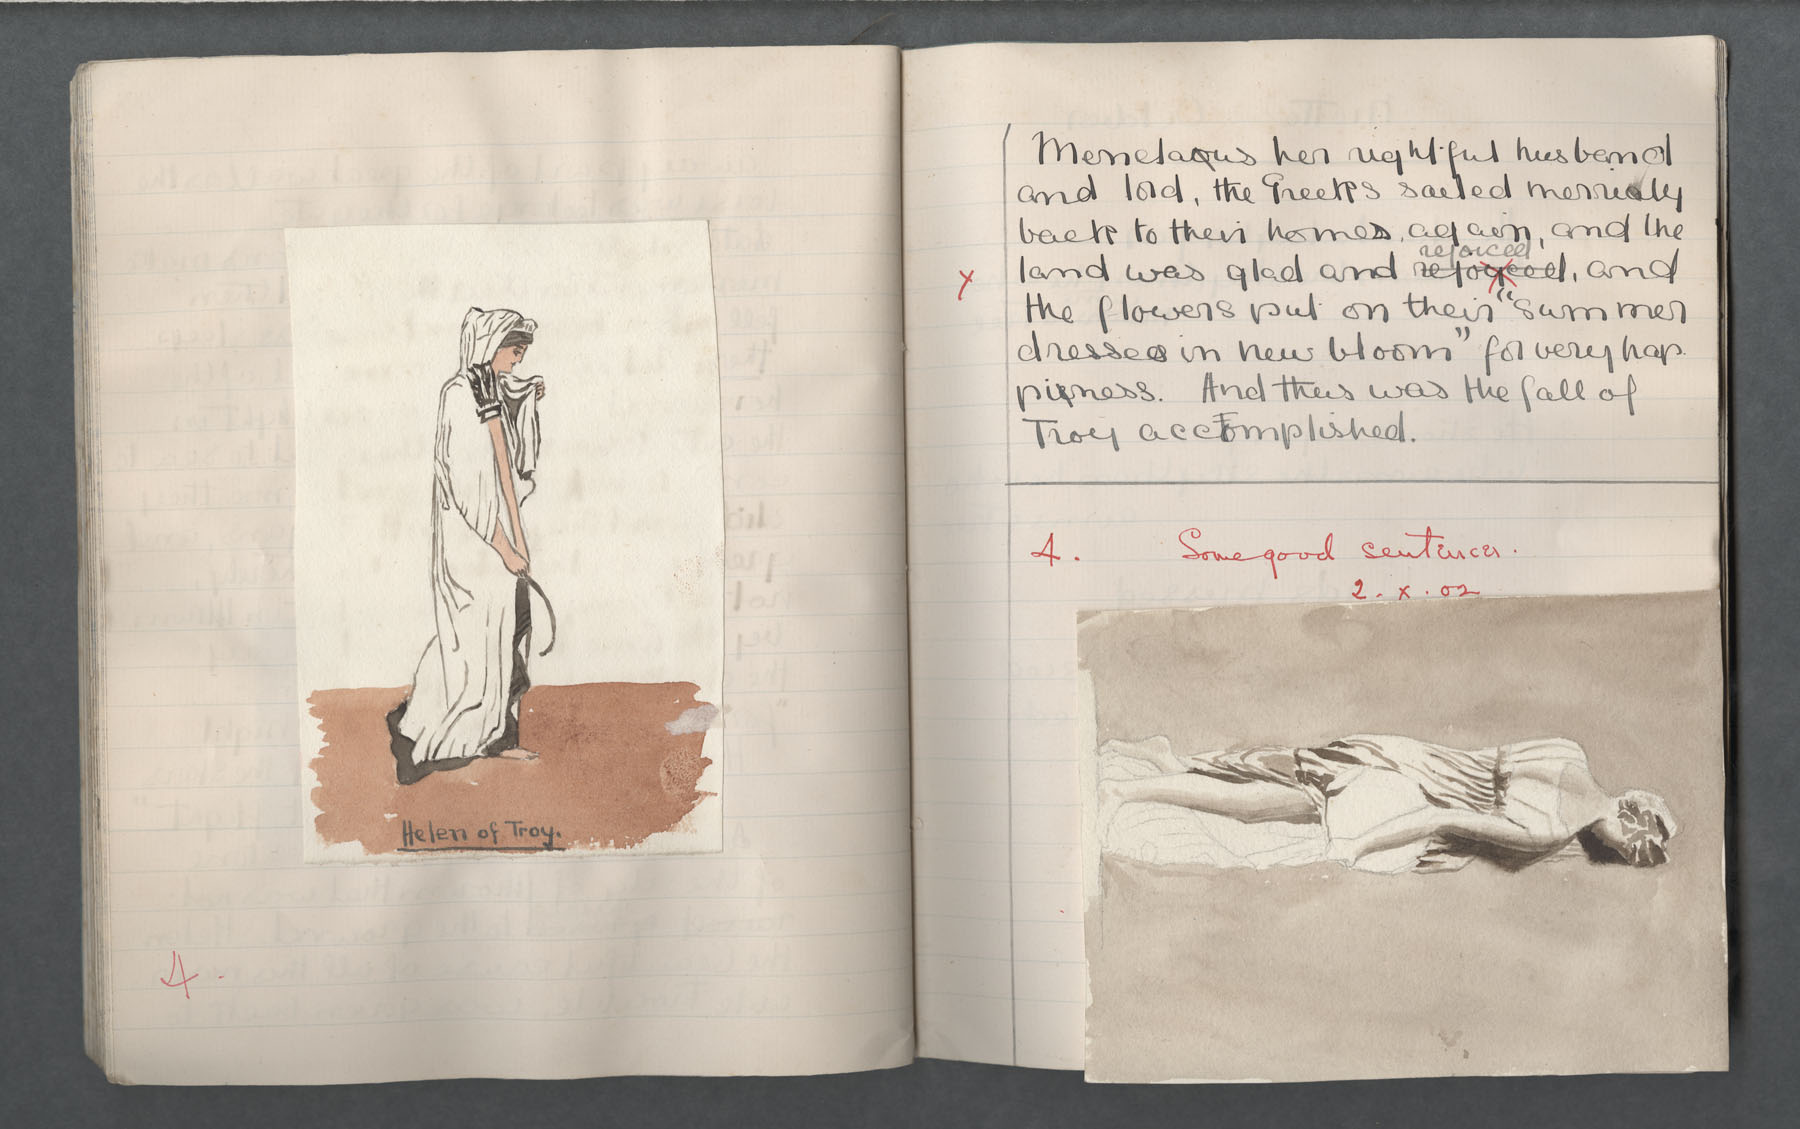 Helen of Troy.
4.
Menelaus her rightful husband
and lord, the Greeks sailed merrily
back to their homes again, and the
rejoiced
x land was glad and rejoyced, and
the flowers put on their "summer
dresses in new bloom" for very hap
piness. And thus was the fall of
Troy accomplished.
4. Some good sentences.
2.x.02